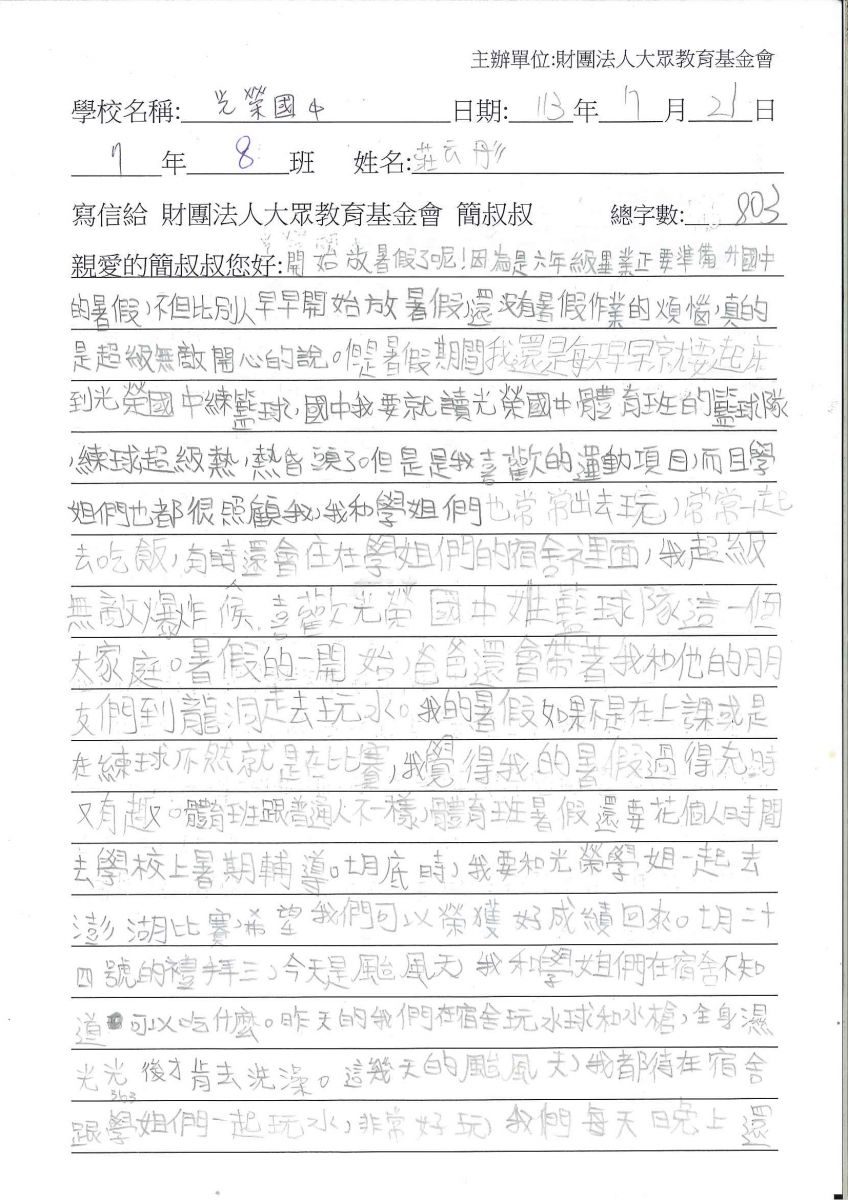 主辦單位:財團法人大眾教育基金會
學校名稱: 光榮國中 日期: 113 年 7 月 21 日
7 年 8 班 姓名: 莊云彤
寫信給 財團法人大眾教育基金會 簡叔叔 總字數: 803
親愛的簡叔叔您好:開始放暑假了呢!因為是六年級畢業正要準備升國中
的暑假,不但比別人早早開始放暑假,還沒有暑假作業的煩惱,真的
是超級無敵開心的說。但是暑假期間我還是每天早早就要起床
到光榮國中練籃球,國中我要就讀光榮國中體育班的籃球隊
,練球超級熱,熱昏頭了。但是是我喜歡的運動項目,而且學
姐們也都很照顧我,我和學姐們也常常出去玩,常常一起
去吃飯,有時還會住在學姐們的宿舍裡面,我超級
無敵爆炸喜歡光榮國中女籃球隊這一個
大家庭。暑假的一開始,爸爸還會帶著我和他的朋
友們到龍洞走去玩水。我的暑假如果不是在上課或是
在練球,不然就是在比賽,我覺得我的暑假過得充時
又有趣。體育班跟普通人不一樣,體育班暑假還要花個人時間
去學校上暑期輔導。七月底時,我要和光榮學姐一起去
澎湖比賽,希望我們可以榮獲好成績回來。七月二十
四號的禮拜三,今天是颱風天,我和學姐們在宿舍不知
道可以吃什麼。昨天的我們在宿舍玩水球和水槍,全身濕
光光後才肯去洗澡。這幾天的颱風天,我都待在宿舍
363
跟學姐們一起玩水,非常好玩,我們每天晚上還